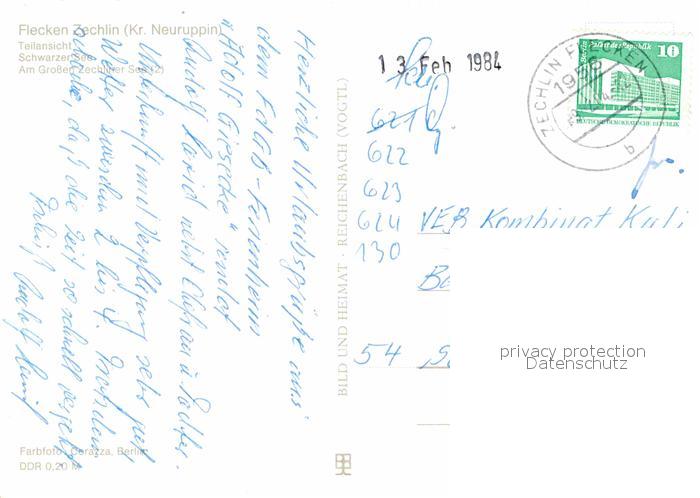 Flecken Zechlin (Kr. Neuruppin)
Teilansicht
Schwarzer See
Am Großen Zechliner See (2)
Herzliche Urlaubsgrüße aus
dem FDGB-Ferienheim
"Adolf Giesecke" sendet
Rudolf nebst Ehefrau u. Tochter.
Unterkunft und Verpflegung sehr gut
Wetter zwischen 2 bis
Schade, daß die Zeit so schnell vergeht
Rudolf
Farbfoto: Corazza, Berlin
DDR 0,20 M
BILD UND HEIMAT · REICHENBACH (VOGTL)
1 3. Feb 1984
621
622
623
624
130
VEB Kombinat Kali
54 S
ZECHLIN FLECKEN
1956
b
Berlin, Palast der Republik
10
DEUTSCHE DEMOKRATISCHE REPUBLIK
privacy protection
Datenschutz